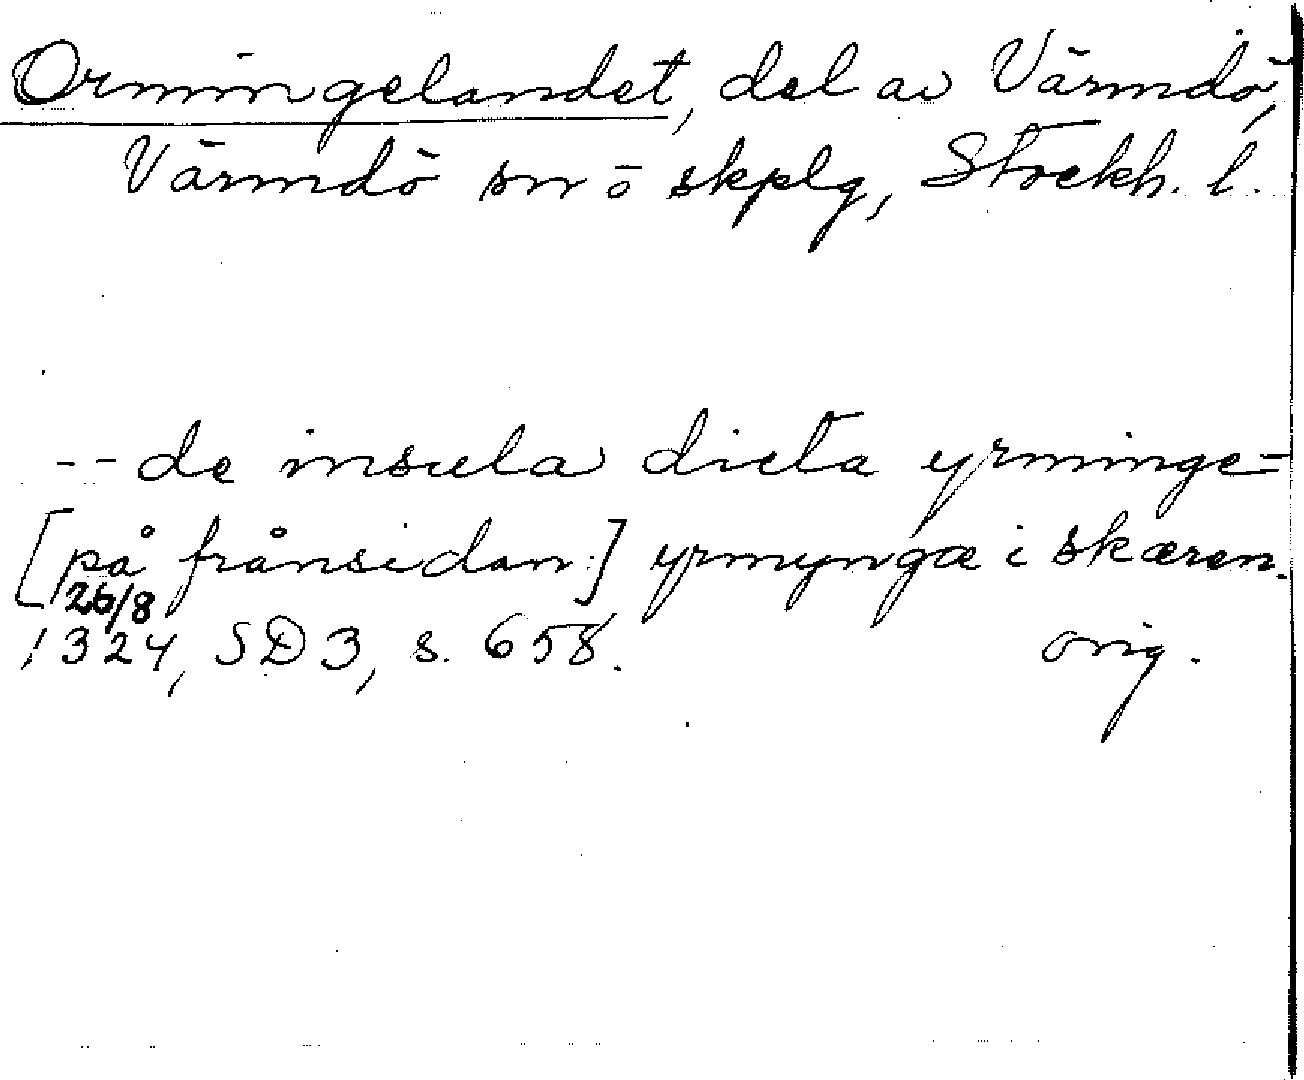 Ormingelandet, del av Värmdö,
Värmdö sn o skplg, Stockh. l.
-- de insula dicta yrminge=
[på frånsidan:] yrmyngæ i skæren.
26/8
1324, SD 3, s. 658. orig.